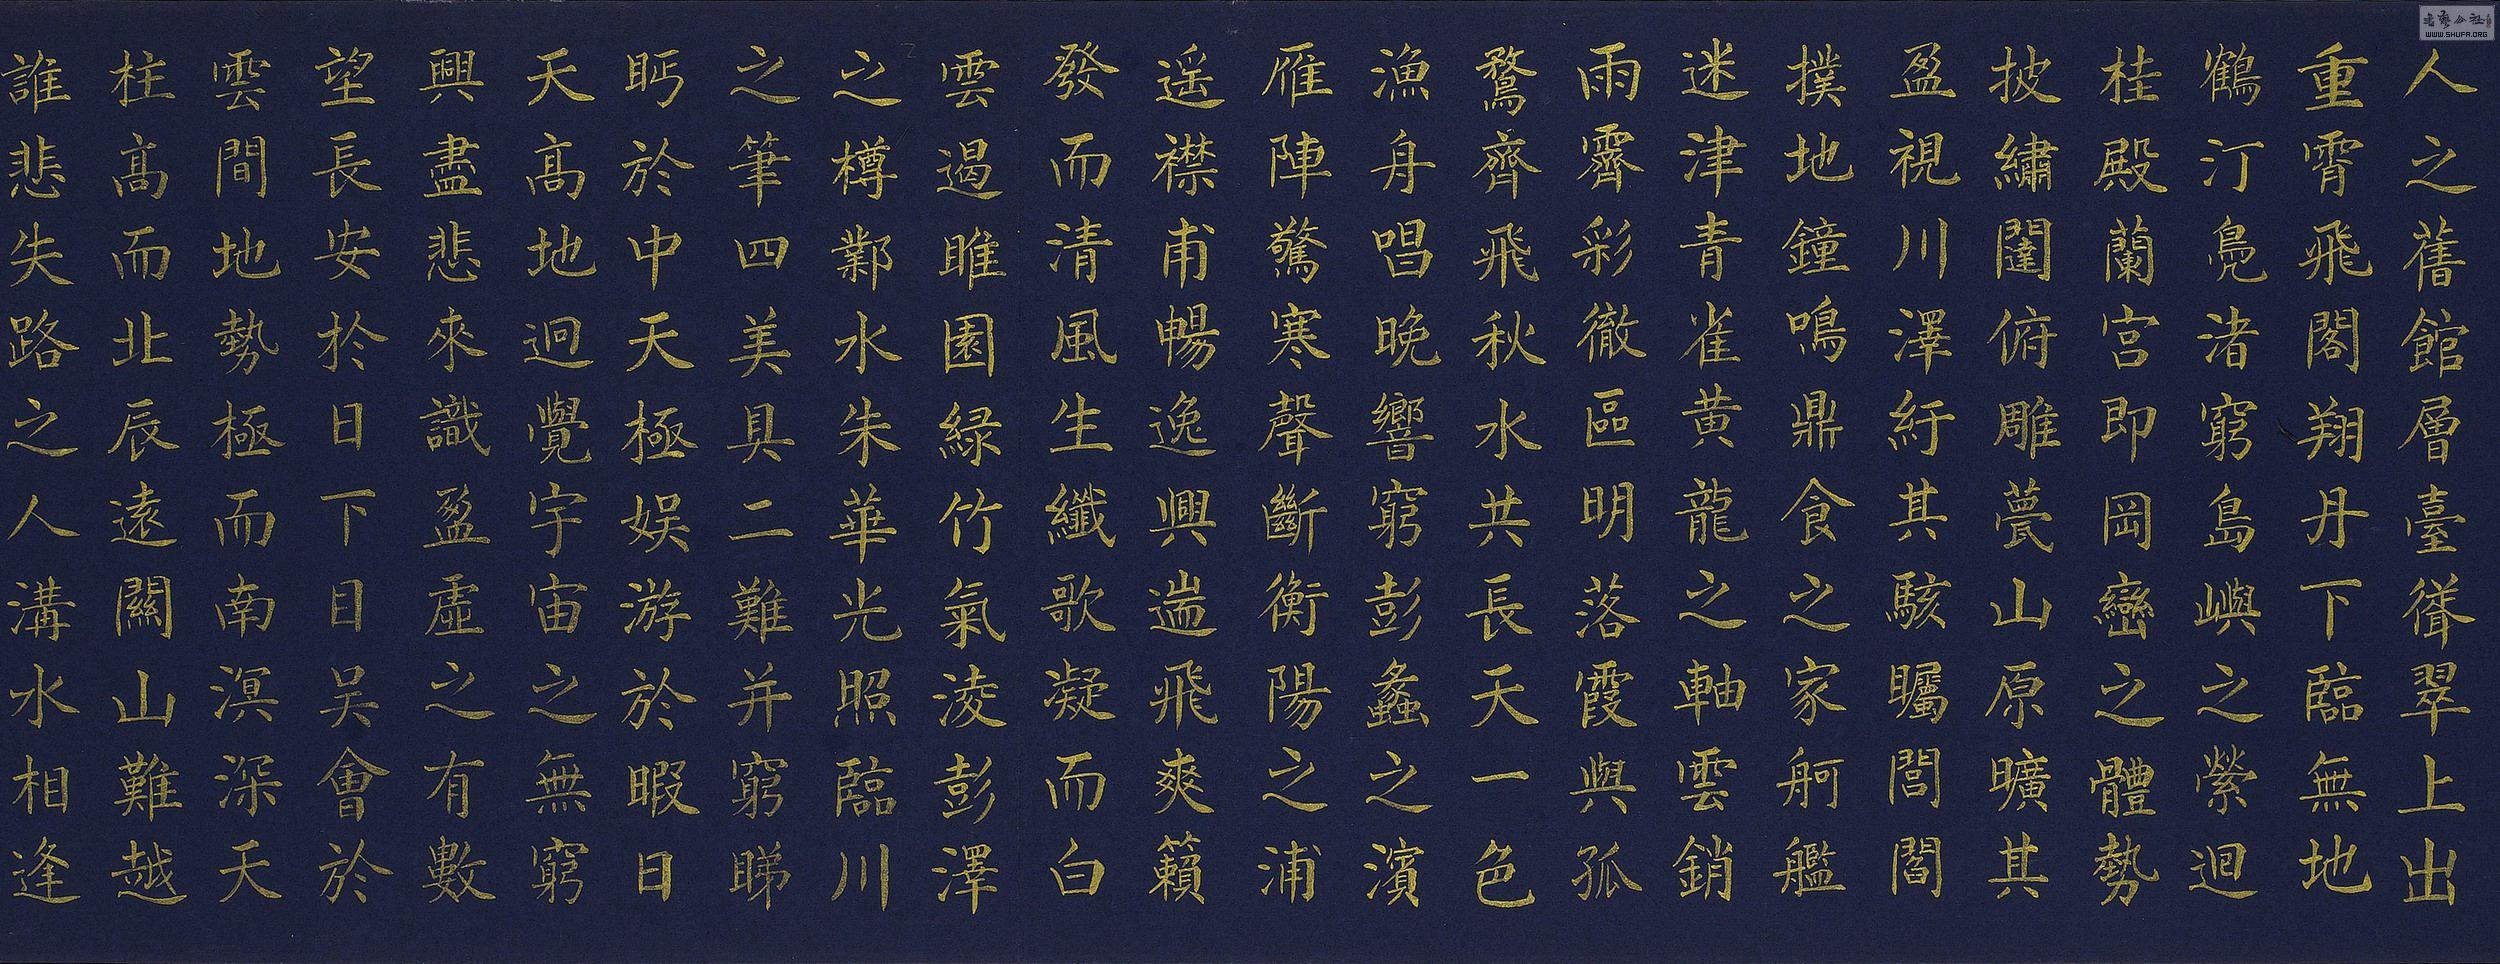 人之舊館層臺聳翠上出
重霄飛閣翔丹下臨無地
鶴汀鳧渚窮島嶼之縈迴
桂殿蘭宮即岡巒之體勢
披繡闥俯雕甍山原曠其
盈視川澤紆其駭矚閭閻
撲地鐘鳴鼎食之家舸艦
迷津青雀黃龍之軸雲銷
雨霽彩徹區明落霞與孤
鶩齊飛秋水共長天一色
漁舟唱晚響窮彭蠡之濱
雁陣驚寒聲斷衡陽之浦
遥襟甫暢逸興遄飛爽籟
發而清風生纖歌凝而白
雲遏睢園緑竹氣淩彭澤
之樽鄴水朱華光照臨川
之筆四美具二難并窮睇
眄於中天極娱游於暇日
天高地迥覺宇宙之無窮
興盡悲來識盈虛之有數
望長安於日下目吴會於
雲間地勢極而南溟深天
柱高而北辰遠關山難越
誰悲失路之人溝水相逢
WWW.SHUFA.ORG